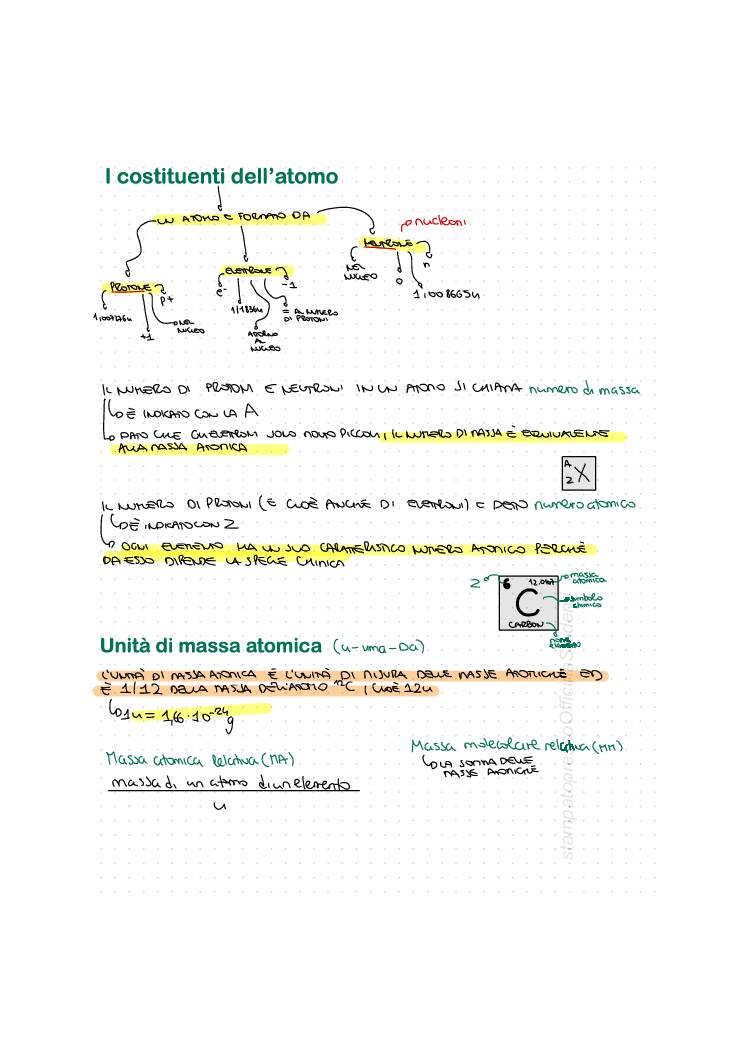 I costituenti dell'atomo
UN ATOMO È FORMATO DA
nucleoni
NEUTRONE
NEL
NUCLEO
0
n
1,008665u
ELETTRONE
e-
-1
1/1836u
= AL NUMERO
DI PROTONI
ATTORNO
AL
NUCLEO
PROTONE
p+
1,007276u
+1
NEL
NUCLEO
IL NUMERO DI PROTONI E NEUTRONI IN UN ATOMO SI CHIAMA numero di massa
È INDICATO CON LA A
DATO CHE GLI ELETTRONI SONO MOLTO PICCOLI, IL NUMERO DI MASSA È EQUIVALENTE
ALLA MASSA ATOMICA
A
Z X
IL NUMERO DI PROTONI (E CIOÈ ANCHE DI ELETTRONI) È DETTO numero atomico
È INDICATO CON Z
OGNI ELEMENTO HA UN SUO CARATTERISTICO NUMERO ATOMICO PERCHÉ
DA ESSO DIPENDE LA SPECIE CHIMICA
Z
6
massa
atomica
C
simbolo
chimico
CARBON
nome
elemento
Unità di massa atomica (u-uma-Da)
L'UNITÀ DI MASSA ATOMICA È L'UNITÀ DI MISURA DELLE MASSE ATOMICHE ED
È 1/12 DELLA MASSA DELL'ATOMO 12C, CIOÈ 12u
1u = 1,66·10-24 g
Massa atomica relativa (MA)
massa di un atomo di un elemento
u
Massa molecolare relativa (MM)
LA SOMMA DELLE
MASSE ATOMICHE